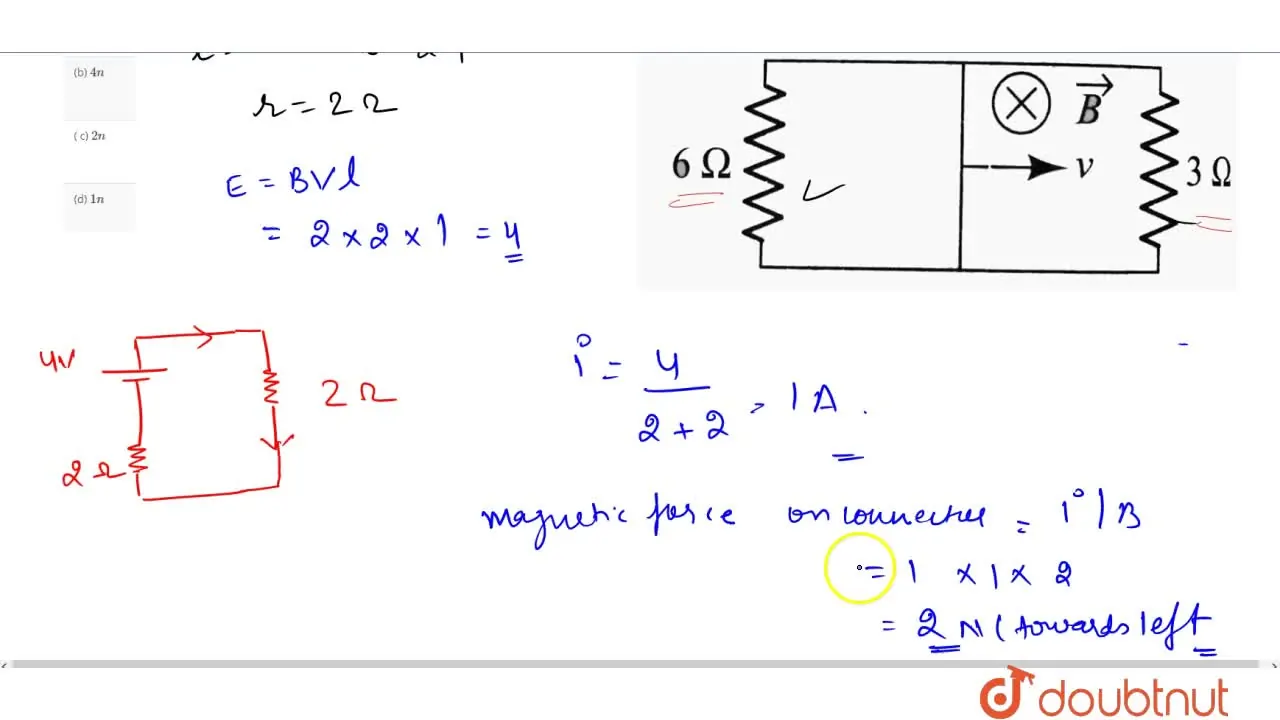 (b) 4n
r = 2 Ω
(c) 2n
E = BVl
(d) 1n
= 2 × 2 × 1 = 4
6 Ω
B
v
3 Ω
4V
2 Ω
2 Ω
i = 4 / 2 + 2 = 1 A.
magnetic force on connector = i l B
= 1 × 1 × 2
= 2 N (towards left
doubtnut